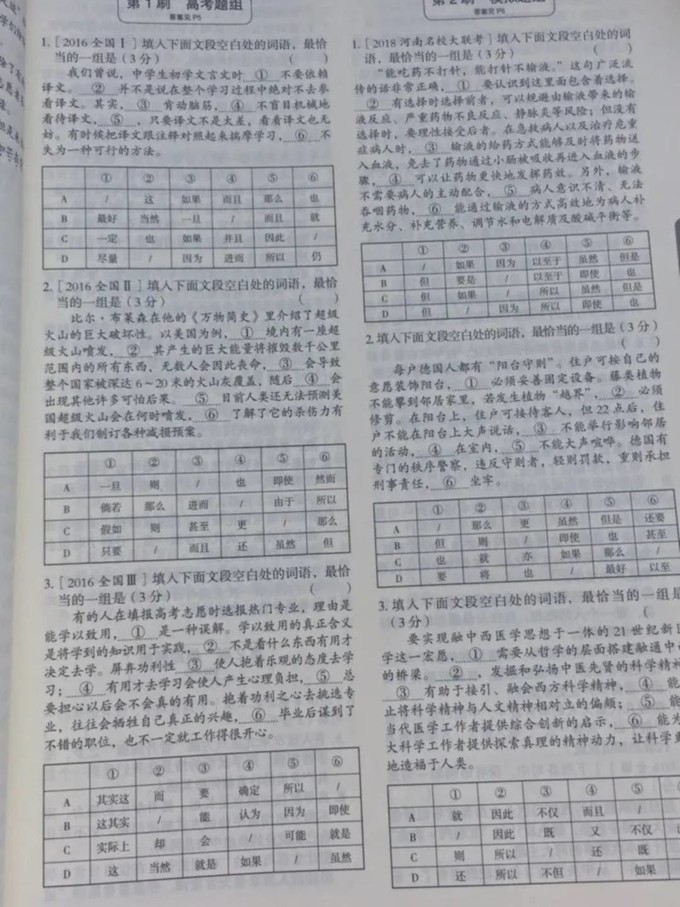 第1刷 高考题组
答案见P5
1.[2016全国Ⅰ]填入下面文段空白处的词语，最恰
当的一组是(3分) ( )
我们曾说，中学生初学文言文时 ① 不要依赖
译文。 ② 并不是说在整个学习过程中绝对不去参
看译文。其实， ③ 肯动脑筋， ④ 不盲目机械地
看待译文， ⑤ ，只要译文不是太差，看看译文也无
妨。有时候把译文跟注释对照起来揣摩学习， ⑥ 不
失为一种可行的方法。
① ② ③ ④ ⑤ ⑥
A / 这 如果 而且 那么 也
B 最好 当然 一旦 / 而且 就
C 一定 也 如果 并且 因此 /
D 尽量 / 因为 进而 所以 仍
2.[2016全国Ⅱ]填入下面文段空白处的词语，最恰
当的一组是(3分) ( )
比尔·布莱森在他的《万物简史》里介绍了超级
火山的巨大破坏性。以美国为例， ① 境内有一座超
级火山喷发， ② 其产生的巨大能量将摧毁数千公里
范围内的所有东西，无数人会因此丧命， ③ 会导致
整个国家被深达6～20米的火山灰覆盖，随后 ④ 会
出现其他许多可怕后果。 ⑤ 目前人类还无法预测美
国超级火山会在何时喷发， ⑥ 了解了它的杀伤力有
利于我们制订各种减损预案。
① ② ③ ④ ⑤ ⑥
A 一旦 则 / 也 即使 然而
B 倘若 那么 进而 / 由于 所以
C 假如 则 甚至 更 / 那么
D 只要 / 而且 还 虽然 但
3.[2016全国Ⅲ]填入下面文段空白处的词语，最恰
当的一组是(3分) ( )
有的人在填报高考志愿时选报热门专业，理由是
能学以致用， ① 是一种误解。学以致用的真正含义
是将学到的知识用于实践， ② 不是看什么东西有用才
决定去学。屏弃功利性 ③ 使人抱着乐观的态度去学
习； ④ 有用才去学习会使人产生心理负担， ⑤ 总
要担心以后会不会真的有用。抱着功利之心去挑选专
业，往往会牺牲自己真正的兴趣， ⑥ 毕业后谋到了
不错的职位，也不一定就工作得很开心。
① ② ③ ④ ⑤ ⑥
A 其实这 而 要 确定 所以 /
B 这其实 / 能 认为 因为 即使
C 实际上 却 会 / 可能 就是
D 这 当然 就是 如果 / 虽然
答案见P6
1.[2018河南名校大联考]填入下面文段空白处的词语，
最恰当的一组是(3分) ( )
“能吃药不打针，能打针不输液。”这句广泛流
传的话非常正确， ① 要认识到这里面包含着选择。
② 有选择时选择前者，可以规避由输液带来的输
液反应、严重药物不良反应、静脉炎等风险；但没有
选择时，要理性接受后者。在急救病人以及治疗危重
症病人时， ③ 输液的给药方式能够及时将药物送
入血液，免去了药物通过小肠被吸收再进入血液的步
骤， ④ 可以让药物更快地发挥药效。另外，输液
不需要病人的主动配合， ⑤ 病人意识不清、无法
吞咽药物， ⑥ 能通过输液的方式高效地为病人补
充水分、补充营养、调节水和电解质及酸碱平衡等。
① ② ③ ④ ⑤ ⑥
A / 如果 因为 以至于 虽然 但是
B 但 要是 / 以至于 即使 也
C 但 如果 / 所以 虽然 但是
D 但 / 因为 所以 即使 也
2.填入下面文段空白处的词语，最恰当的一组是(3分)
( )
每户德国人都有“阳台守则”。住户可按自己的
意愿装饰阳台， ① 必须妥善固定设备。藤类植物
不能攀到邻居家里，若发生植物“越界”， ② 必须
修剪。在阳台上，住户可接待客人，但22点后，住
户不能在阳台上大声说话， ③ 不能举行影响邻居
的活动， ④ 在室内， ⑤ 不能大声喧哗。德国有
专门的秩序警察，违反守则者，轻则罚款，重则承担
刑事责任， ⑥ 坐牢。
① ② ③ ④ ⑤ ⑥
A / 那么 更 虽然 但是 还要
B 但 则 / 即使 也 甚至
C 也 就 亦 如果 那么 /
D 要 将 也 / 最好 以至
3.填入下面文段空白处的词语，最恰当的一组是
(3分) (
要实现融中西医学思想于一体的21世纪新医
学这一宏愿， ① 需要从哲学的层面搭建融通中
的桥梁。 ② ，发掘和弘扬中医先贤的科学精神
③ 有助于接引、融会西方科学精神， ④ 能
止将科学精神与人文精神相对立的偏颇； ⑤ 能
当代医学工作者提供综合创新的启示， ⑥ 能为
大科学工作者提供探索真理的精神动力，让科学更
地造福于人类。
① ② ③ ④ ⑤
A 就 因此 不仅 而且 /
B / 因此 既 又 不仅
C 则 所以 / 还 既
D 还 所以 不但 / 如果